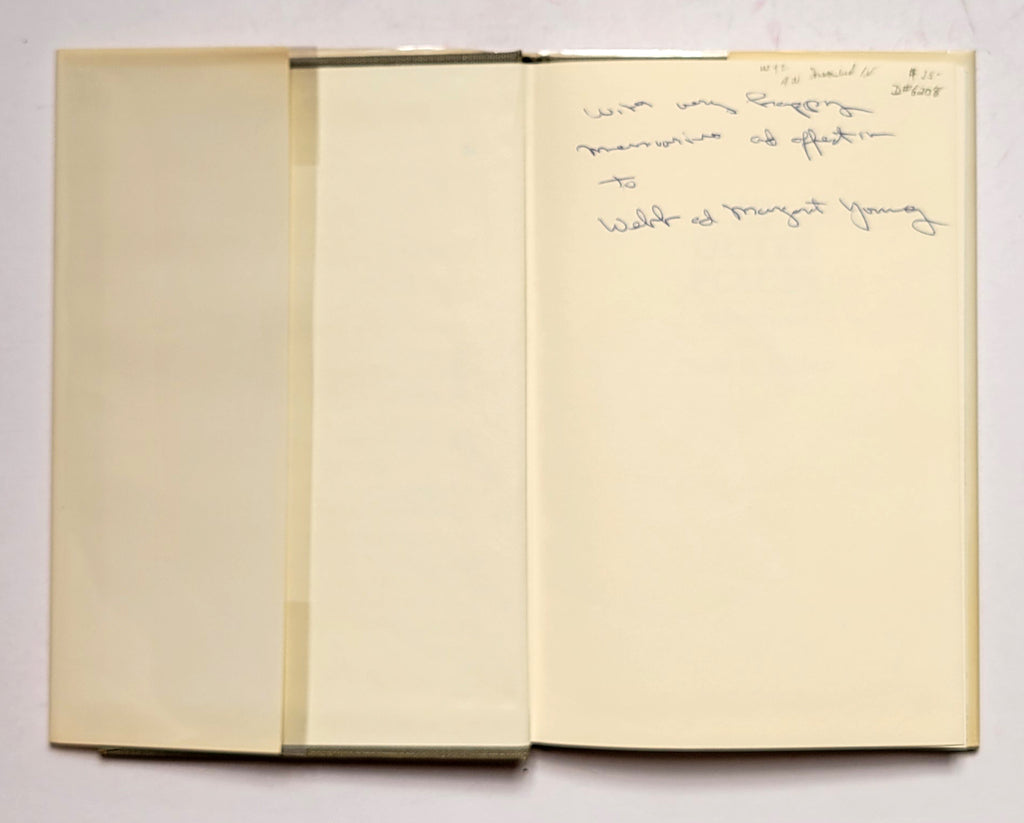 $ 35-
D#6208
With very happy
memories ad affection
to
Webb ad Margaret Young